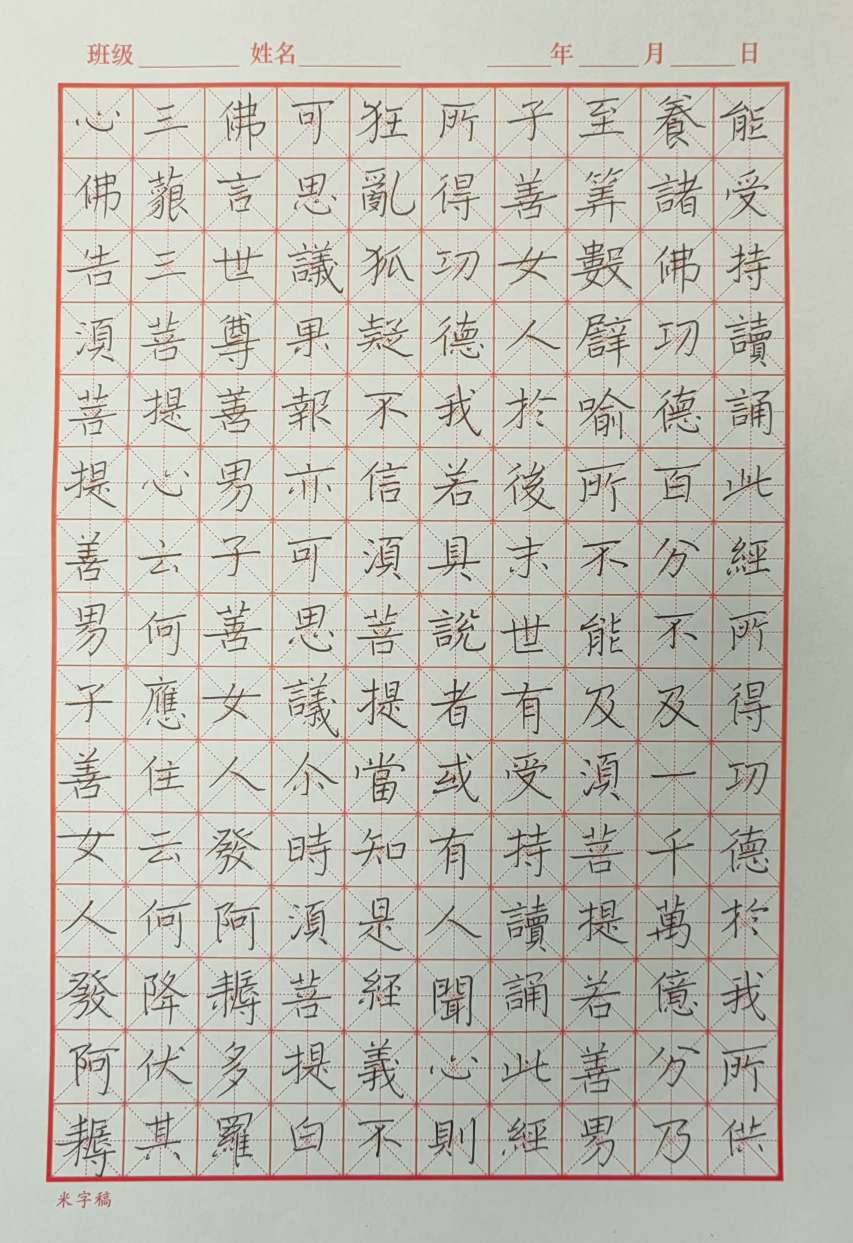 班级 姓名 年 月 日
能受持讀誦此經所得功德於我所供
養諸佛功德百分不及一千萬億分乃
至筭數譬喻所不能及須菩提若善男
子善女人於後末世有受持讀誦此經
所得功德我若具說者或有人聞心則
狂亂狐疑不信須菩提當知是經義不
可思議果報亦可思議尒時須菩提白
佛言世尊善男子善女人發阿耨多羅
三藐三菩提心云何應住云何降伏其
心佛告須菩提善男子善女人發阿耨
米字稿